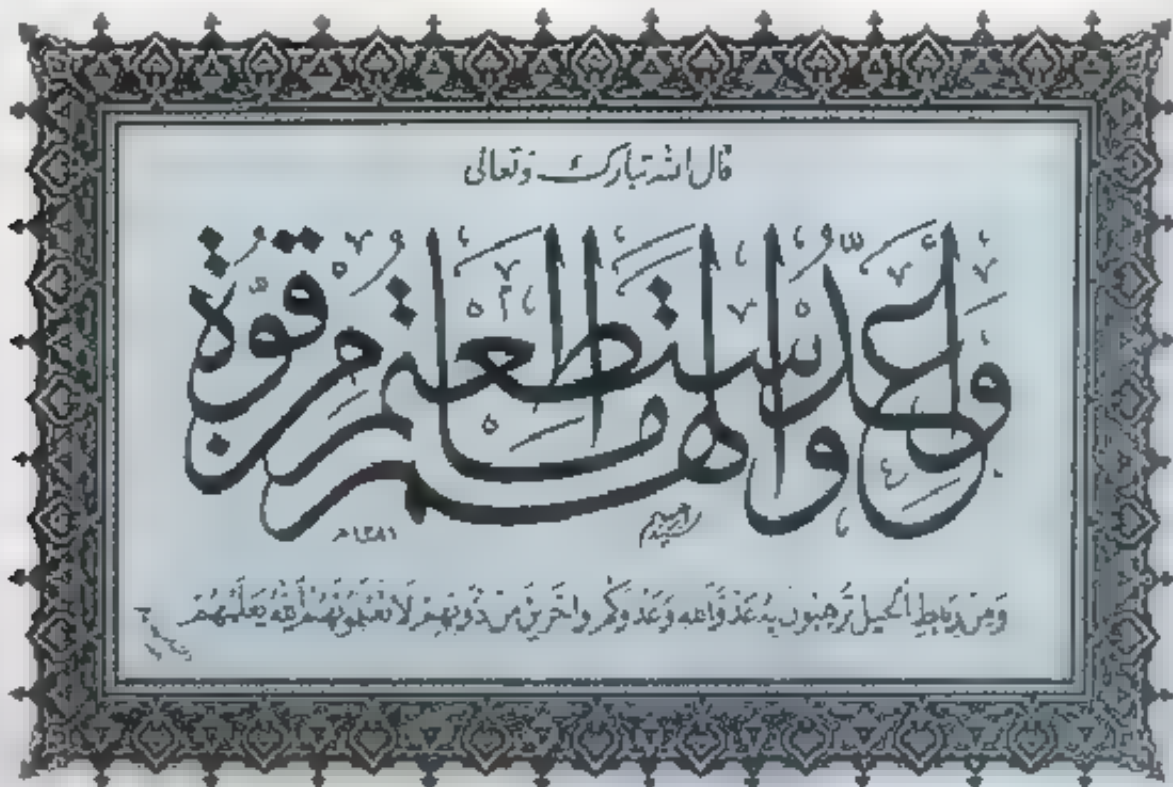 قال الله تبارك وتعالى
وَأَعِدُّوا لَهُم مَّا اسْتَطَعْتُم مِّن قُوَّةٍ
١٣٨١ه
وَمِنْ رِبَاطِ الْخَيْلِ تُرْهِبُونَ بِهِ عَدُوَّ اللهِ وَعَدُوَّكُمْ وَآخَرِينَ مِنْ دُونِهِمْ لَا تَعْلَمُونَهُمُ اللهُ يَعْلَمُهُمْ